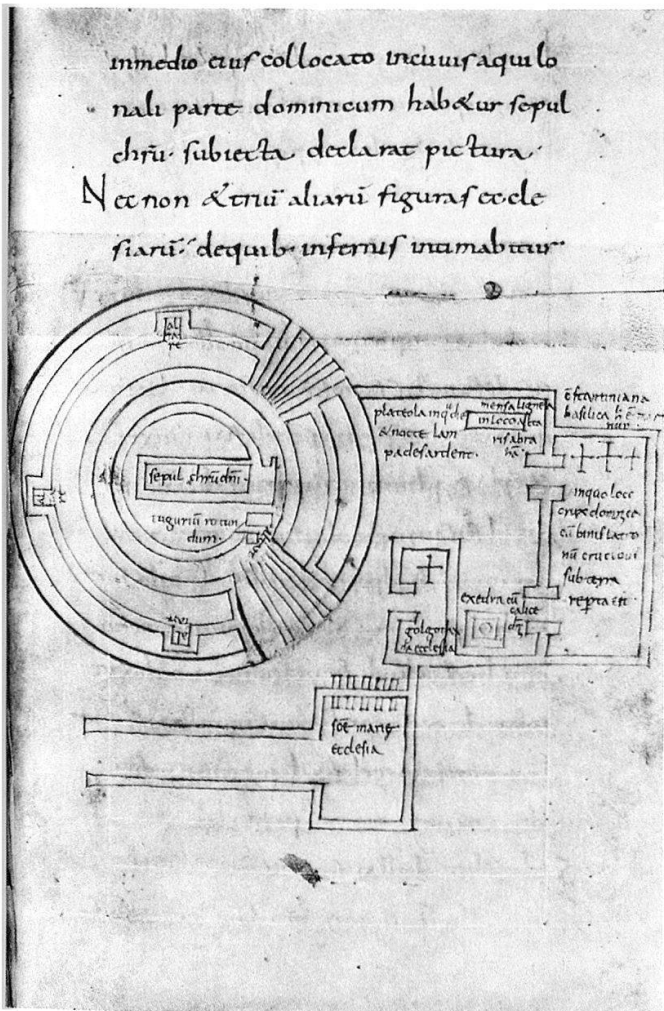 inmedio eius collocato incuius aquilo
nali parte dominicum hab&ur sepul
chrū· subiecta declarat pictura·
Nec non &triū aliarū figuras eccle
siarū· dequib· inferius intimabitur·
al
ta
re
plateola inqua die
&nocte lam
pades ardent·
mensa lignea
inloco alta
ris abra
hā·
constantiniana
basilica
sepulchrū dn̄i·
tugurium rotun
dum·
inquo loco
crux dominica
cū binis latro
nū crucibus
sub terra
reperta est·
exedra cū
calice
dn̄i
golgotha
na ecclesia
scē marię
ecclesia